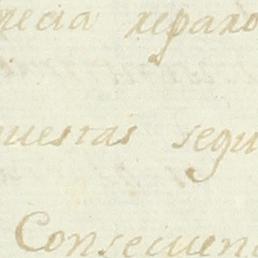 necia reparo
uestas segu
Consecuen